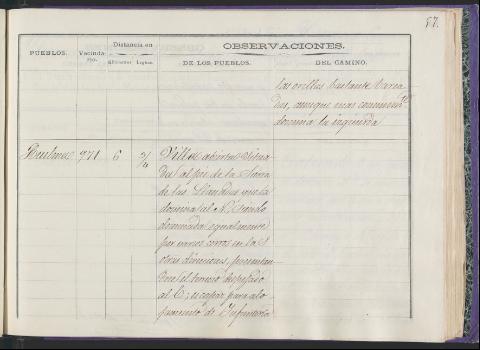 87.
PUEBLOS.
Vecindario.
Distancia en
Kilómetros Leguas.
OBSERVACIONES.
DE LOS PUEBLOS.
DEL CAMINO.
las orillas bastante varia
das, aunque mas comunmte
domina la izquierda
971 6 Villa abierta situa
da al pie de la Sierra
de las que la
domina al N, siendo
dominada igualmente
por varios cerros en las
otras direcciones, presentan
dose el terreno despejado
al E; es capaz para alo
jamiento de Infanteria